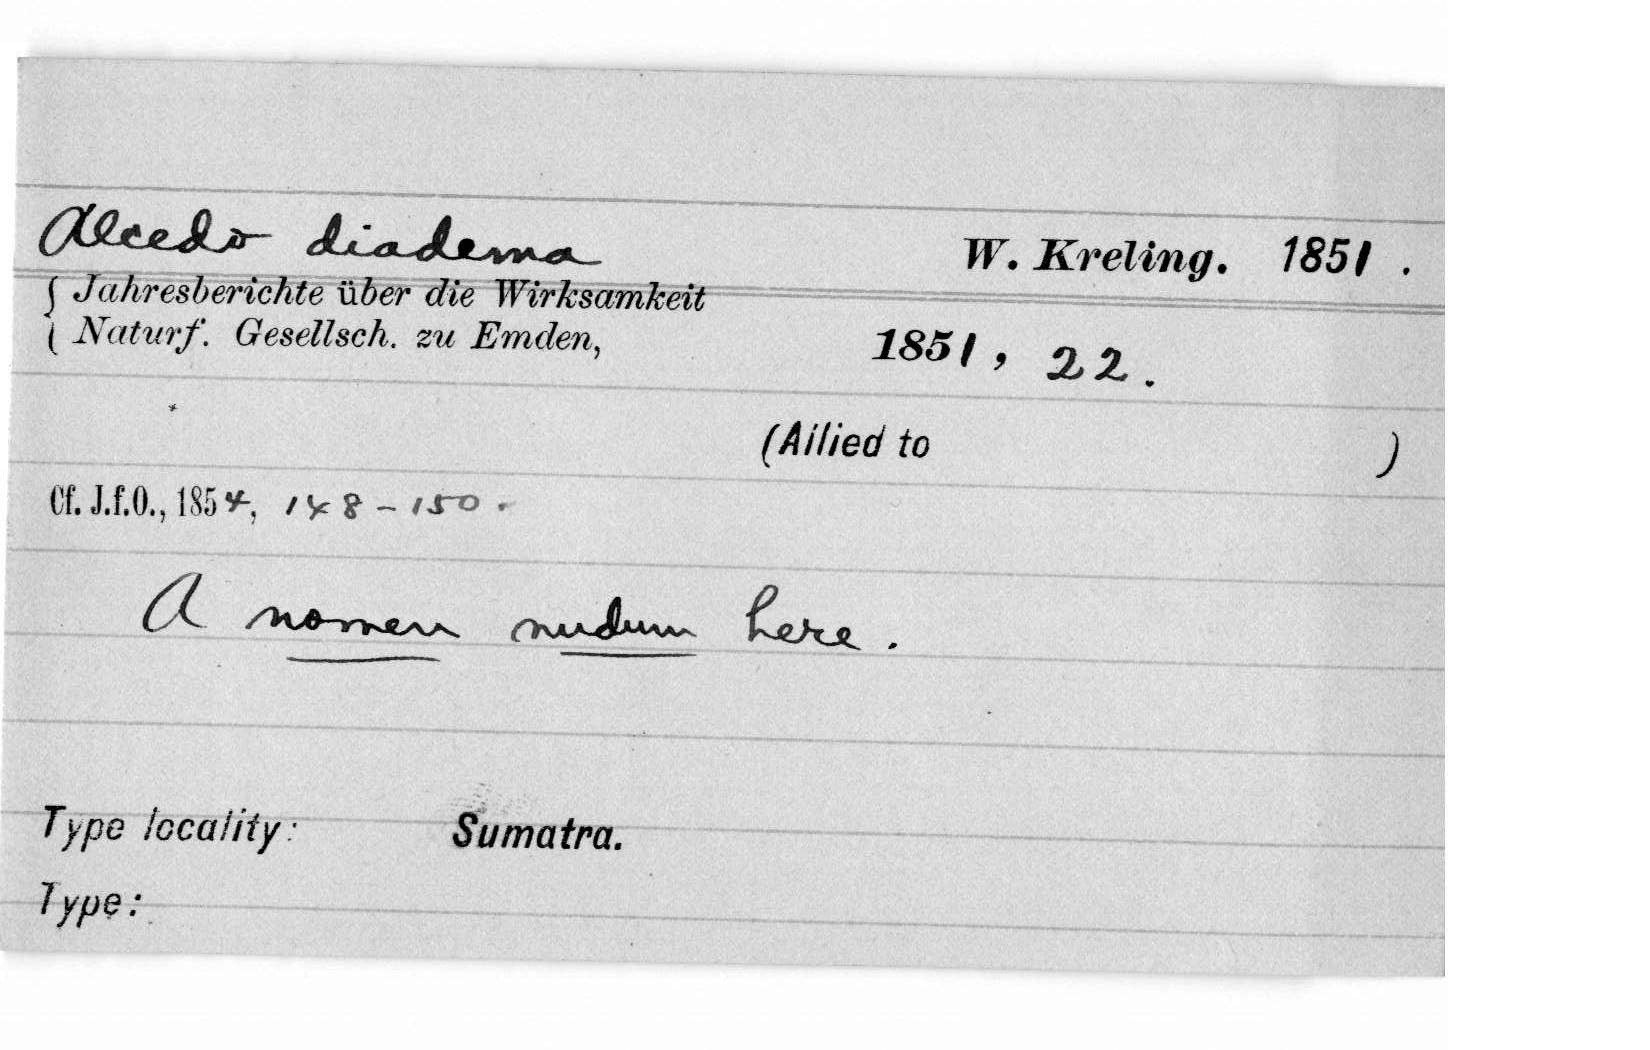 Alcedo diadema W. Kreling. 1851.
{ Jahresberichte über die Wirksamkeit
Naturf. Gesellsch. zu Emden, 1851, 22.
(Allied to )
Cf. J.f.O., 1854, 148-150.
A nomen nudum here.
Type locality: Sumatra.
Type: